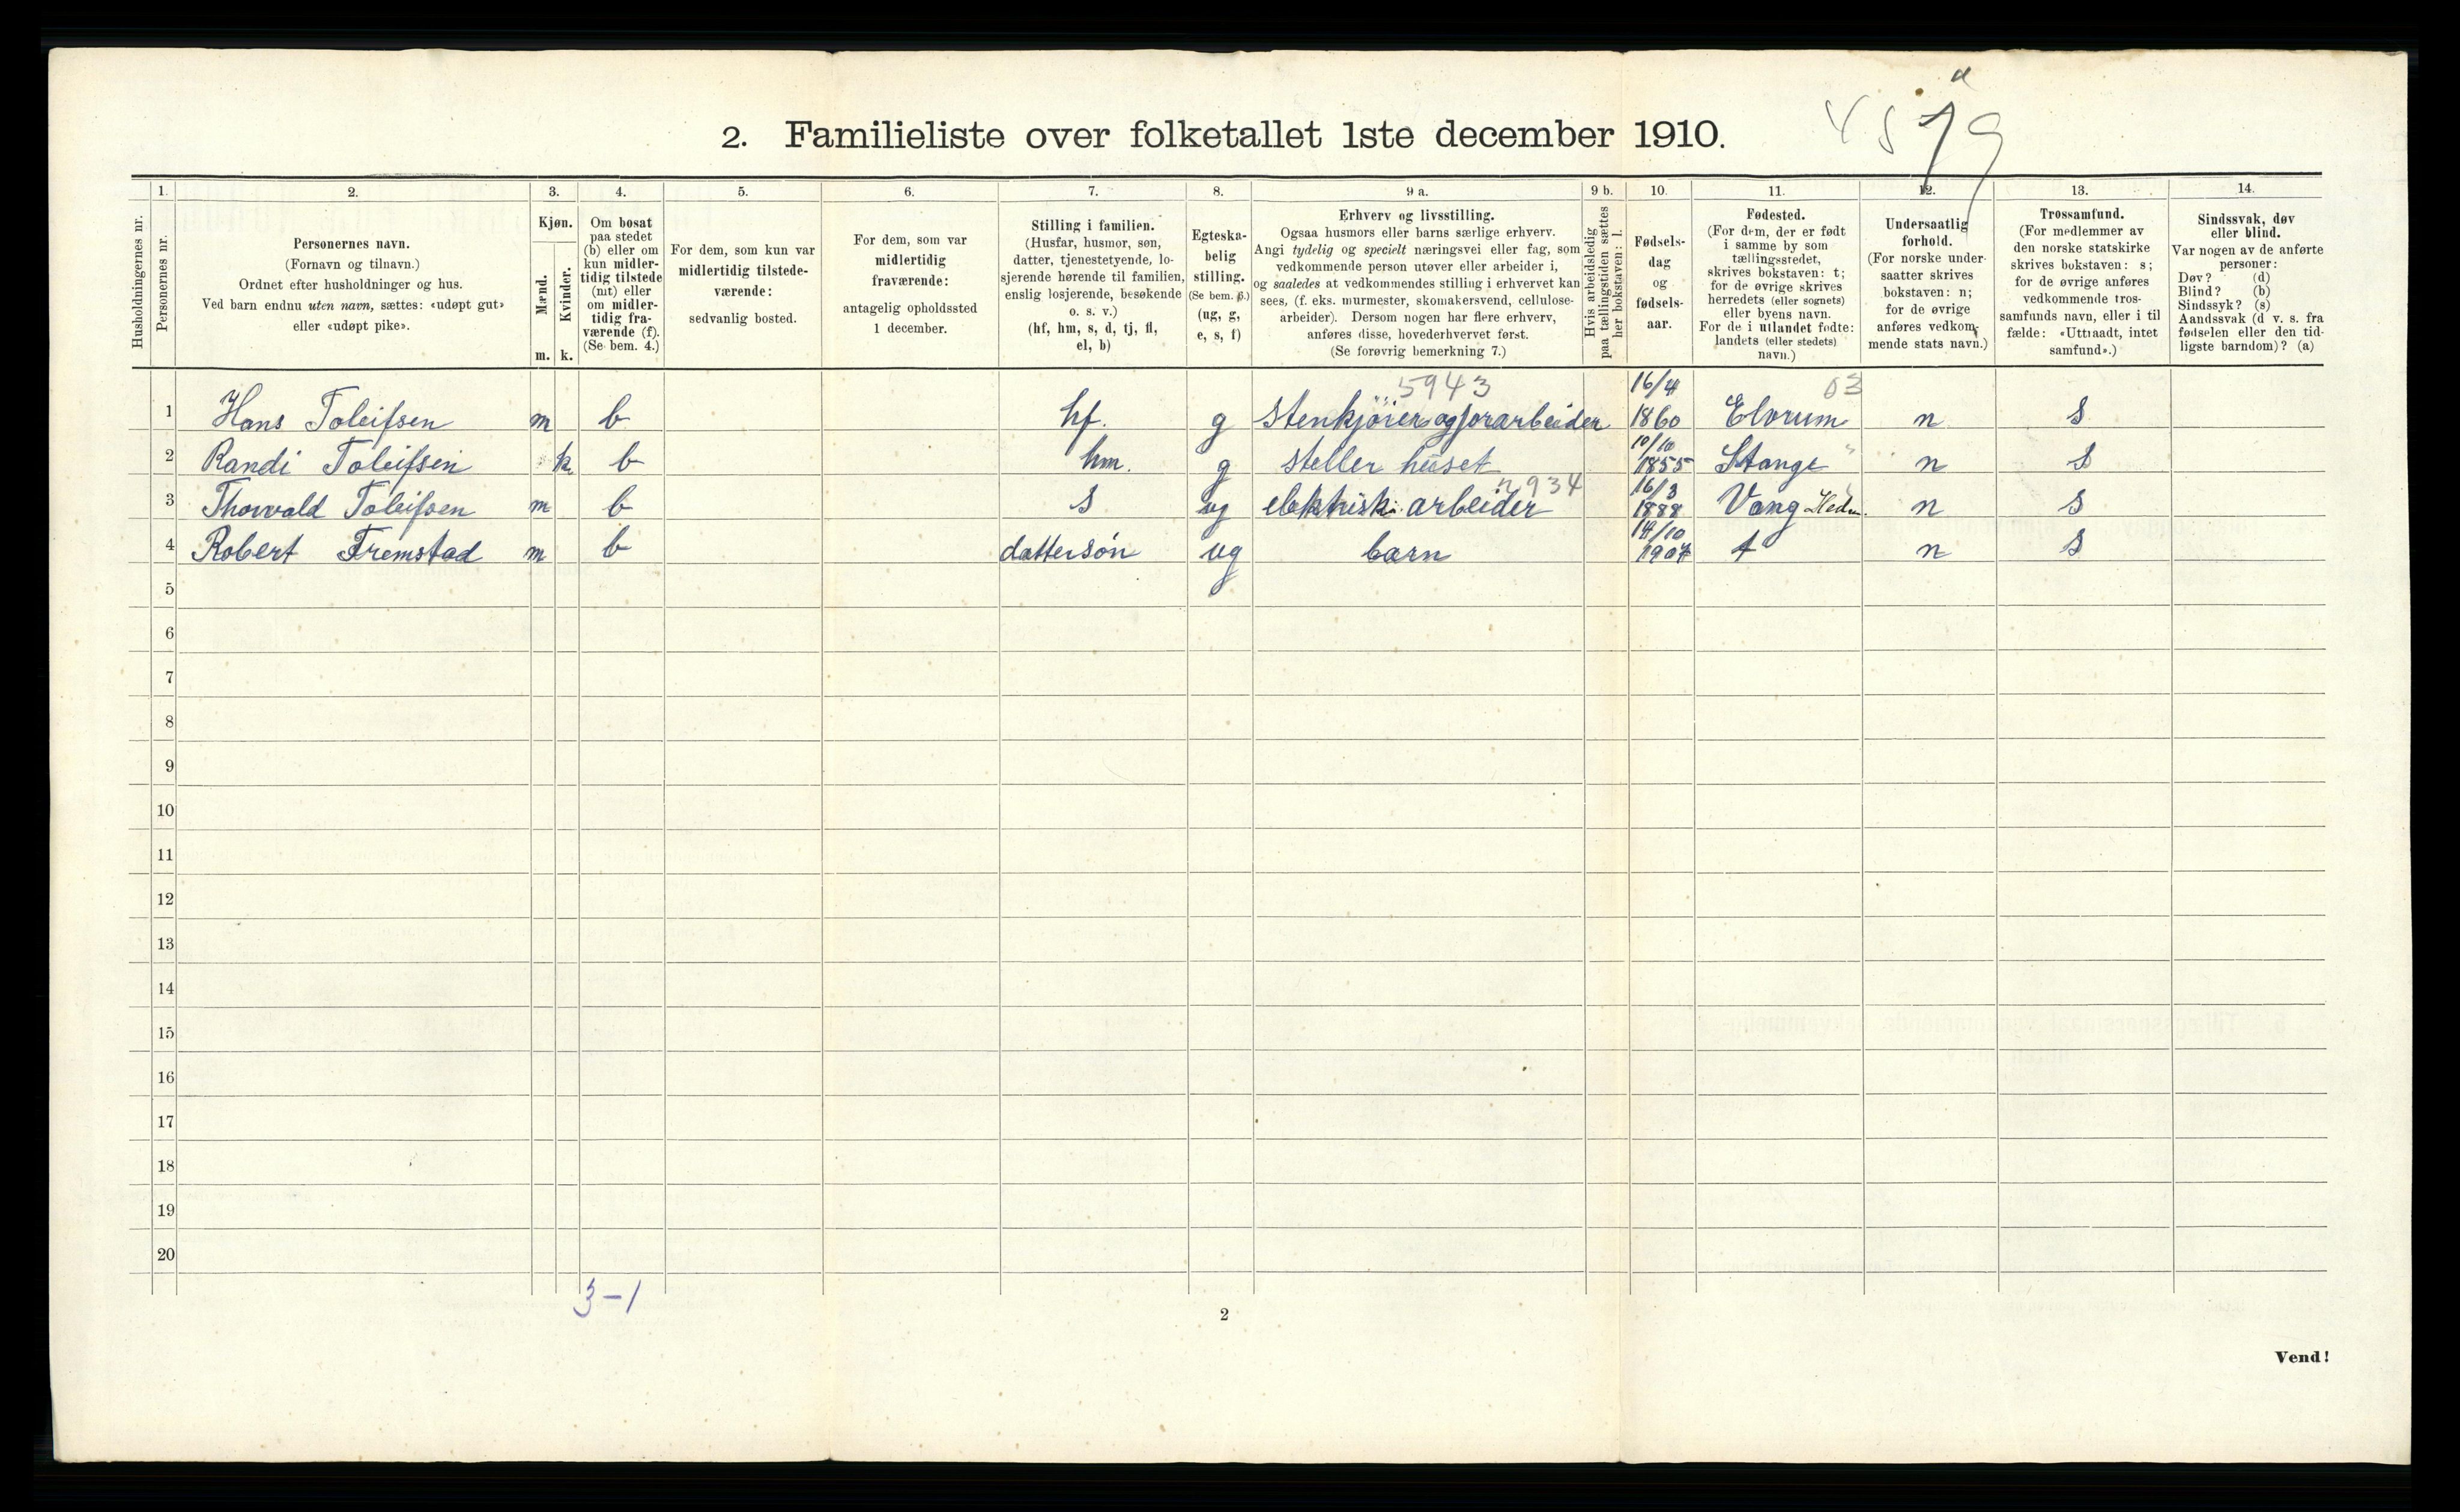 2. Familieliste over folketallet 1ste december 1910.
1. 2. 3. 4. 5. 6. 7. 8. 9 a. 9 b. 10. 11. 12. 13. 14.
Husholdningernes nr.
Personernes nr.
Personernes navn.
(Fornavn og tilnavn.)
Ordnet efter husholdninger og hus.
Ved barn endnu uten navn, sættes: «udøpt gut»
eller «udøpt pike».
Kjøn.
Mænd.
Kvinder.
m. k.
Om bosat
paa stedet
(b) eller om
kun midler-
tidig tilstede
(mt) eller
om midler-
tidig fra-
værende (f).
(Se bem. 4.)
For dem, som kun var
midlertidig tilstede-
værende:
sedvanlig bosted.
For dem, som var
midlertidig
fraværende:
antagelig opholdssted
1 december.
Stilling i familien.
(Husfar, husmor, søn,
datter, tjenestetyende, lo-
sjerende hørende til familien,
enslig losjerende, besøkende
o. s. v.)
(hf, hm, s, d, tj, fl,
el, b)
Egteska-
belig
stilling.
(Se bem. 6.)
(ug, g,
e, s, f)
Erhverv og livsstilling.
Ogsaa husmors eller barns særlige erhverv.
Angi tydelig og specielt næringsvei eller fag, som
vedkommende person utøver eller arbeider i,
og saaledes at vedkommendes stilling i erhvervet kan
sees, (f. eks. murmester, skomakersvend, cellulose-
arbeider). Dersom nogen har flere erhverv,
anføres disse, hovederhvervet først.
(Se forøvrig bemerkning 7.)
Hvis arbeidsledig
paa tællingstiden sættes
her bokstaven: l.
Fødsels-
dag
og
fødsels-
aar.
Fødested.
(For dem, der er født
i samme by som
tællingsstedet,
skrives bokstaven: t;
for de øvrige skrives
herredets (eller sognets)
eller byens navn.
For de i utlandet fødte:
landets (eller stedets)
navn.)
Undersaatlig
forhold.
(For norske under-
saatter skrives
bokstaven: n;
for de øvrige
anføres vedkom-
mende stats navn.)
Trossamfund.
(For medlemmer av
den norske statskirke
skrives bokstaven: s;
for de øvrige anføres
vedkommende tros-
samfunds navn, eller i til
fælde: «Uttraadt, intet
samfund».)
Sindssvak, døv
eller blind.
Var nogen av de anførte
personer:
Døv? (d)
Blind? (b)
Sindssyk? (s)
Aandssvak (d v. s. fra
fødselen eller den tid-
ligste barndom)? (a)
5943 16/4 03
1 Hans Toleifsen m b hf. g Stenkjører og jorarbeider 1860 Elvrum n s
10/10
2 Randi Toleifsen k b hm. g steller huset 1855 Stange n s
n934 16/3
3 Thorvald Toleifsen m b s ug elektrisk arbeider 1888 Vang Hedm. n s
14/10
4 Robert Fremstad m b dattersön ug barn 1907 t n s
5
6
7
8
9
10
11
12
13
14
15
16
17
18
19
20
3-1
2
Vend!